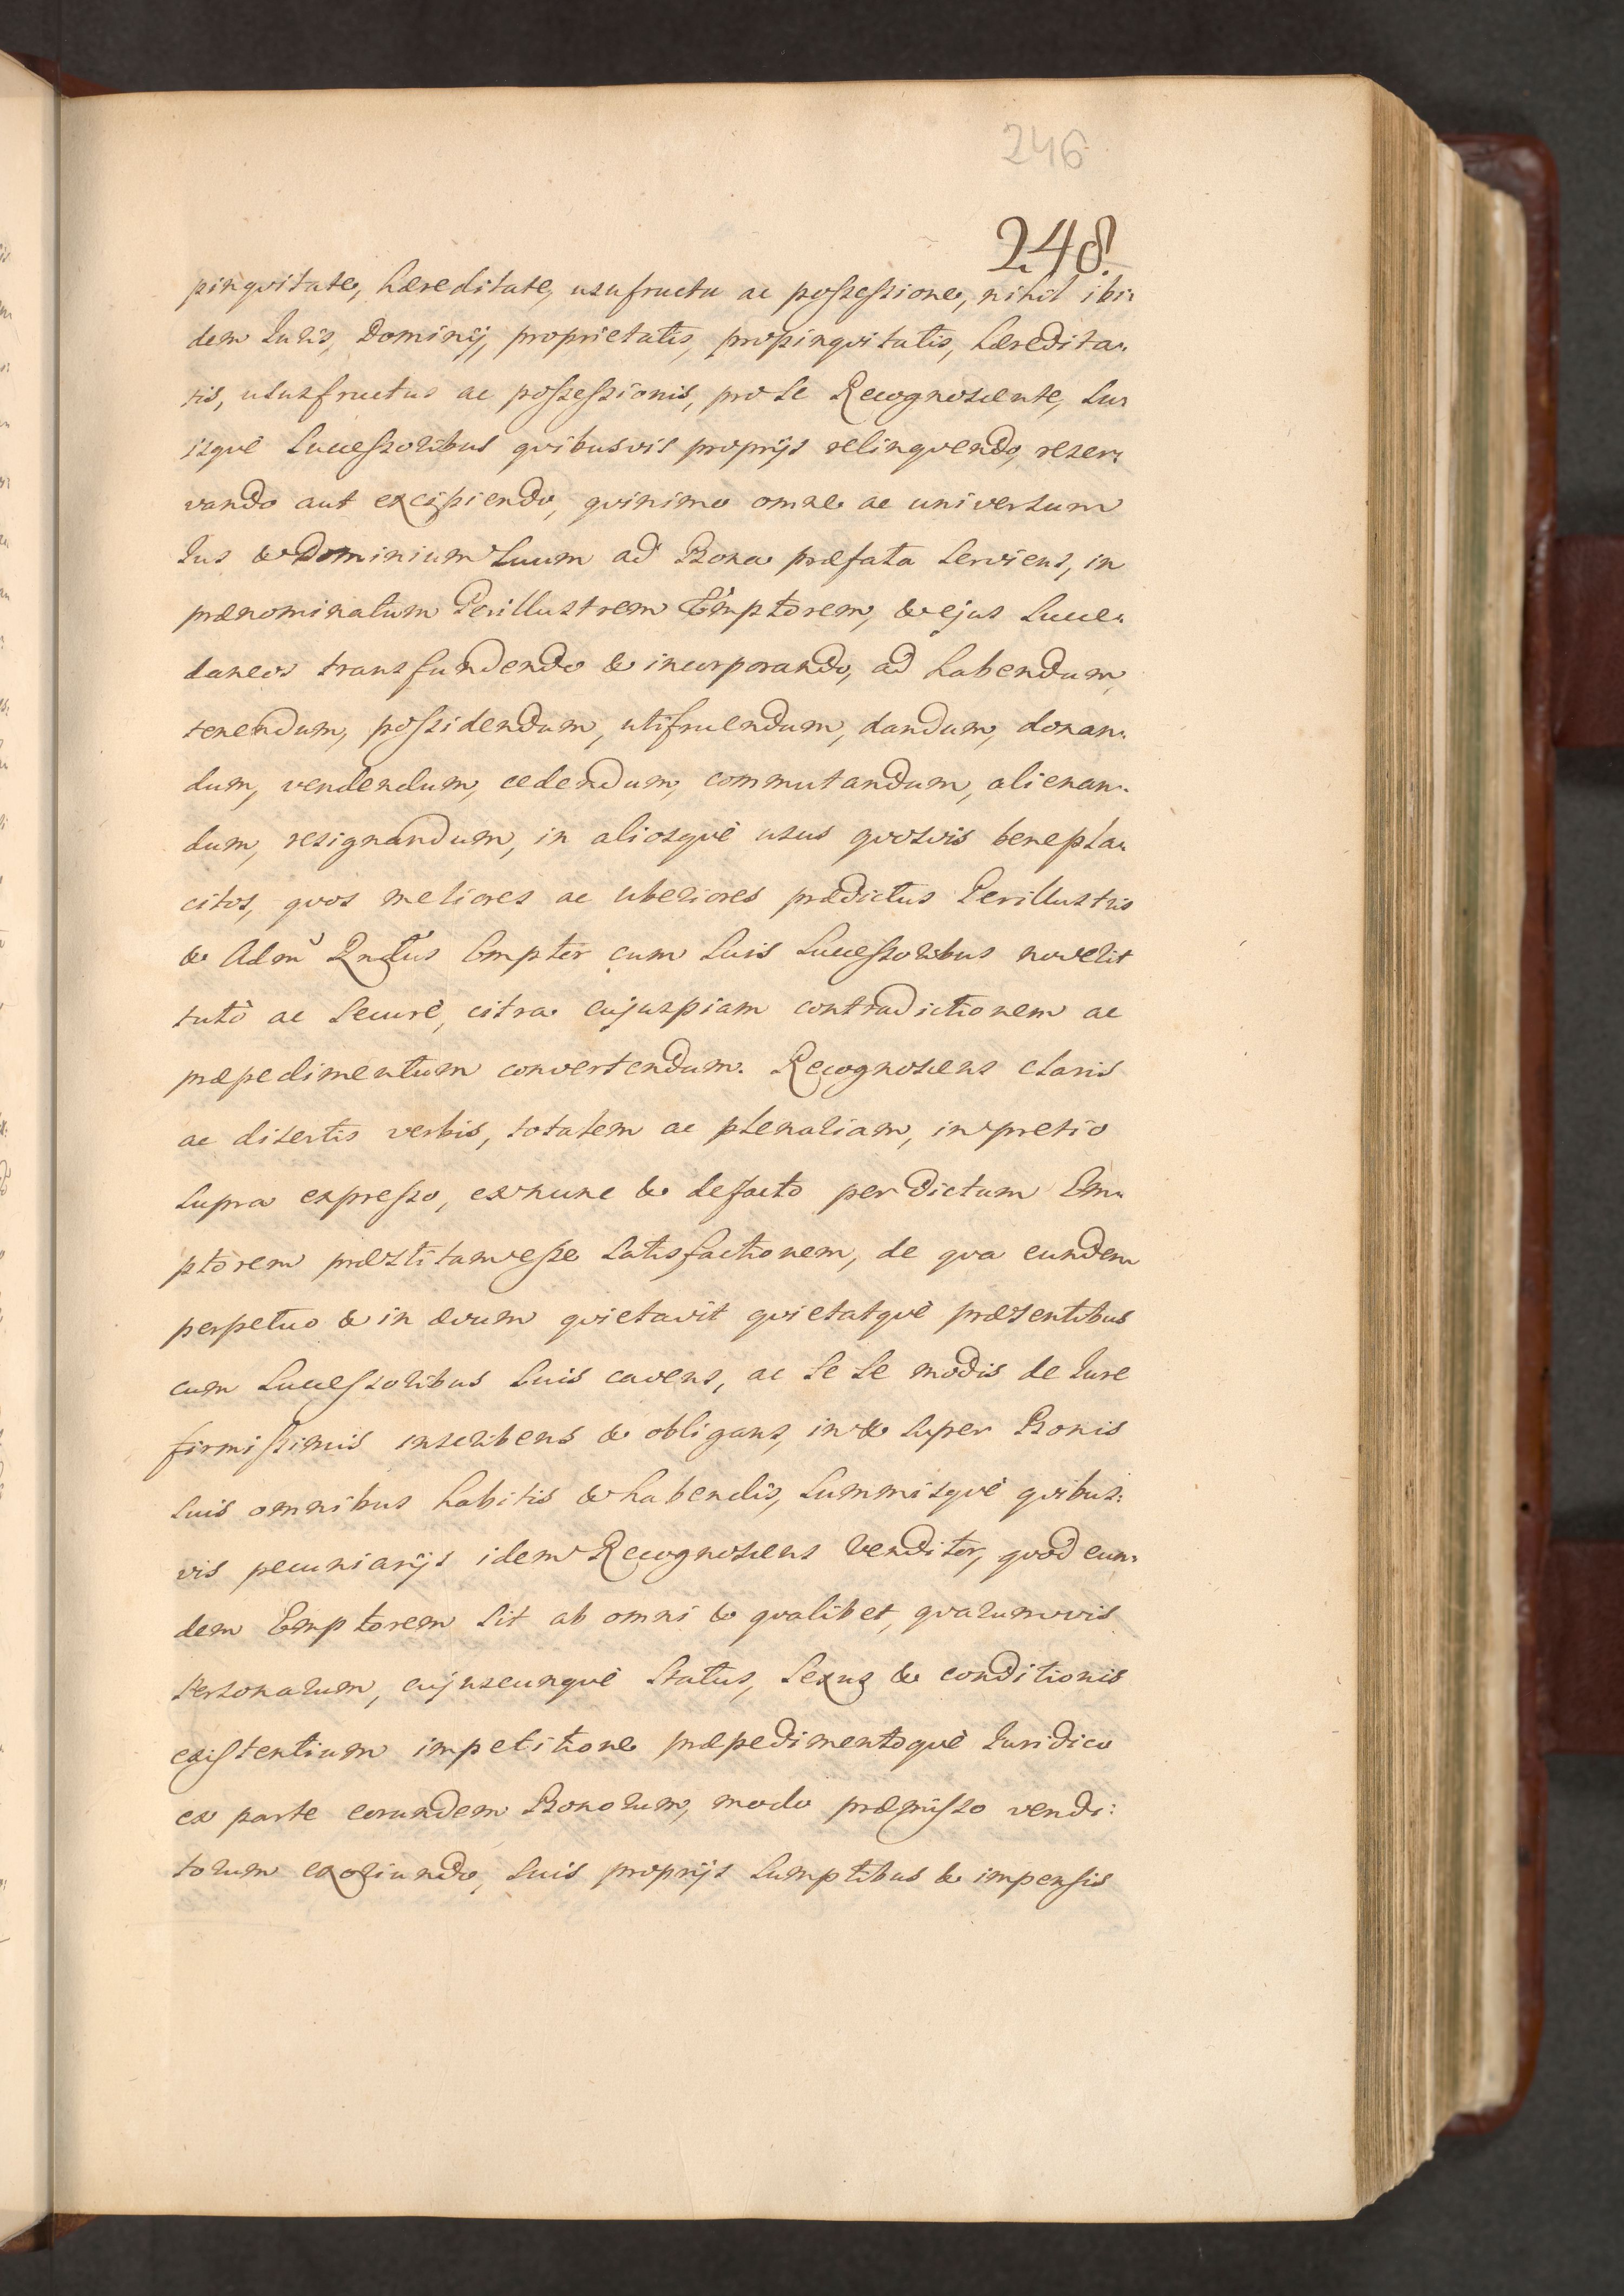 246
248.
pinqvitate, hæreditate, usufructu ac possessione, nihil ibi-
dem Juris, Dominij, proprietatis, propinqvitatis, hæredita-
tis, ususfructus ac possessionis, pro se Recognoscente, Su-
isqvè Successoribus qvibusvis proprijs relinqvendo, reser-
vando aut excipiendo, qvinimo omne ac universum
Jus & Dominium Suum ad Bona præfata Serviens, in
prænominatum Perillustrem Emptorem, & ejus Succe-
daneos transfundendo & incorporando, ad habendum,
tenendum, possidendum, utifruendum, dandum, donan-
dum, vendendum, cedendum, commutandum, alienan-
dum, resignandum, in aliosqvè usus qvosvis benepla-
citos, qvos meliores ac uberiores prædictus Perillustris
& Adm Rndus Emptor cum Suis Successoribus noverit
tutò ac Securè, citra cujuspiam contradictionem ac
præpedimentum convertendum. Recognoscens claris
ac disertis verbis, totalem ac plenariam, in pretio
Supra expresso, ex nunc & de facto per dictum Em-
ptorem præstitam esse Satisfactionem, de qva eundem
perpetuo & in ævum qvietavit qvietatqvè præsentibus
cum Successoribus Suis cavens, ac Se Se modis de Jure
firmissimis inscribens & obligans, in & Super Bonis
Suis omnibus habitis & habendis, Summisqvè qvibus:
vis pecuniarijs idem Recognoscens Venditor, qvod eun-
dem Emptorem Sit ab omni & qvalibet, qvarumvis
personarum, cujuscunqvè Status, Sexus & conditionis
existentium impetitione præpedimentoqvè Juridico
ex parte eorundem Bonorum, modo præmisso vendi:
torum exoriundo, Suis proprijs Sumptibus & impensis